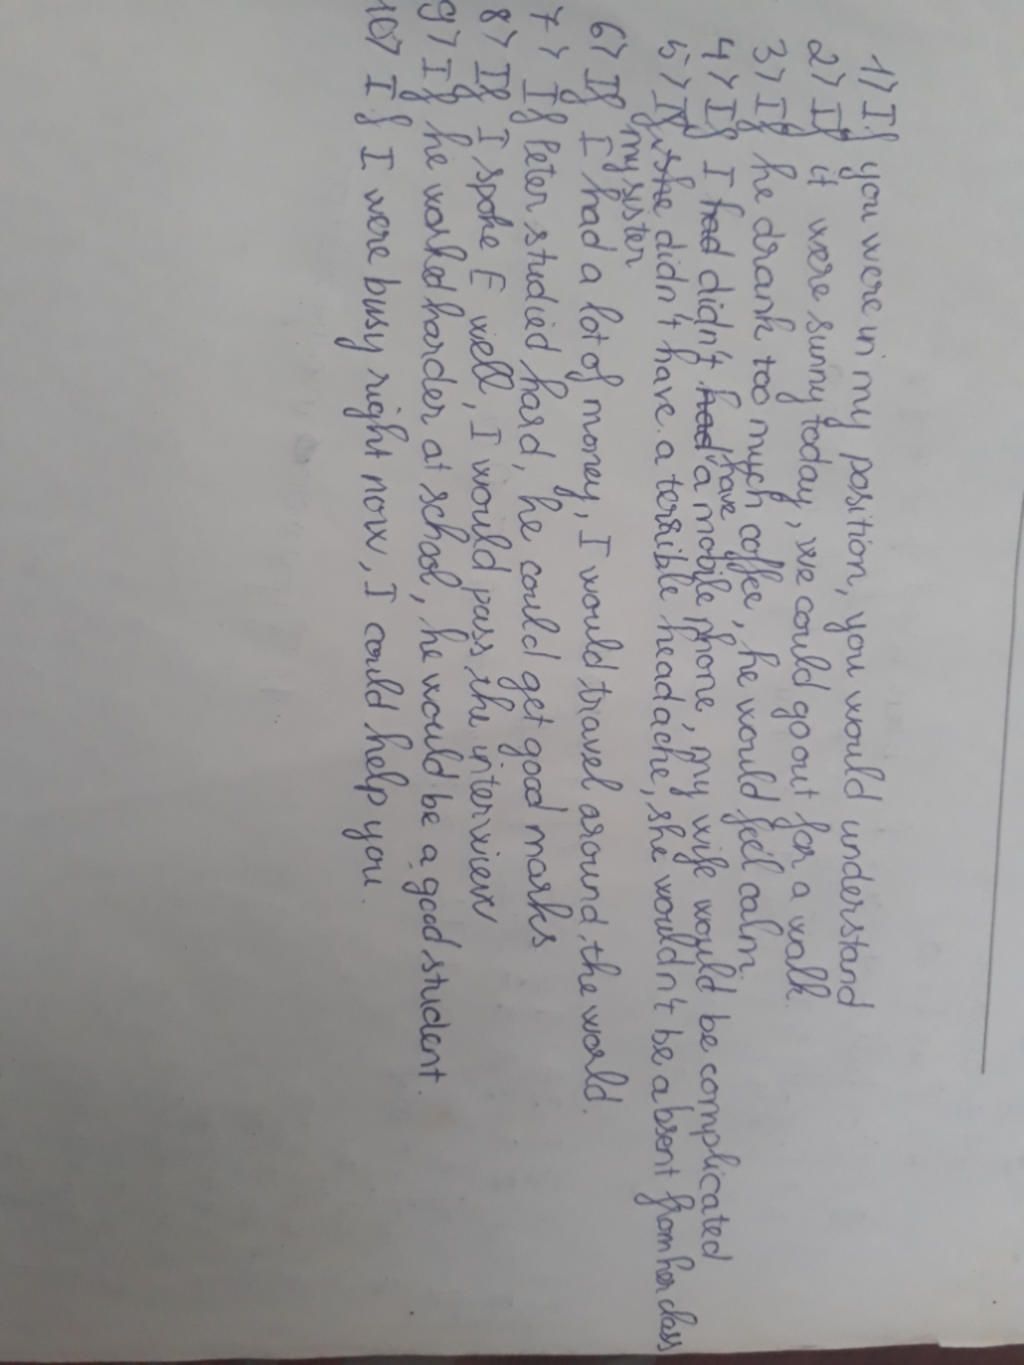 1> If you were in my position, you would understand
2> If it were sunny today, we could go out for a walk.
3> If he drank too much coffee, he would feel calm.
4> If I had didn't had have a mobile phone, my wife would be complicated
5> If she didn't have a terrible headache, she wouldn't be absent from her class
my sister
6> If I had a lot of money, I would travel around the world.
7> If Peter studied hard, he could get good marks
8> If I spoke E well, I would pass the interview
9> If he worked harder at school, he would be a good student.
10> If I were busy right now, I could help you.